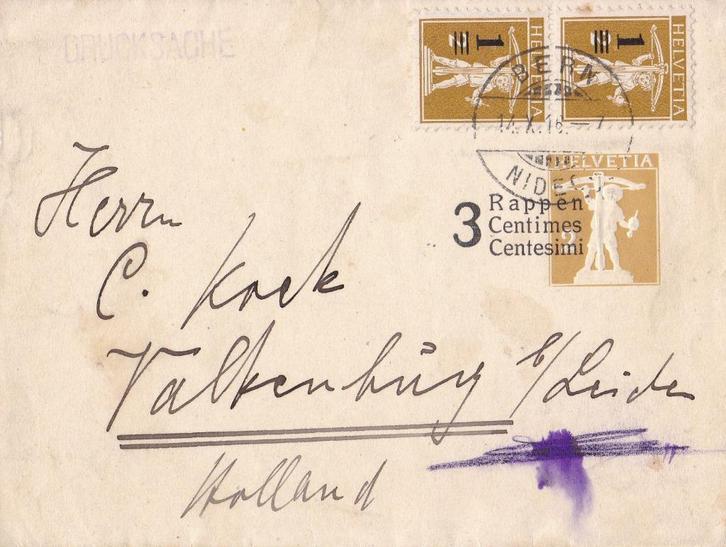 DRUCKSACHE
1 HELVETIA
1 HELVETIA
BERN
14.X.16.—7
NIDECK
HELVETIA
2
3 Rappen
Centimes
Centesimi
Herrn
C. Kock
Valkenburg b/Leiden
Holland